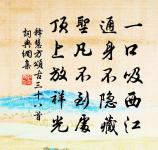 一口吸西江
通身不隐藏
圣凡不到处
顶上放祥光
释慧方颂古三十八首
词典网集